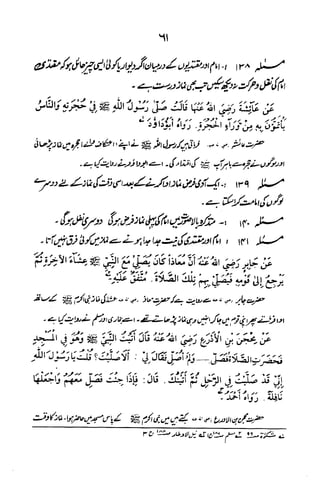 ۶۱
مسئلہ ۱۳۸ :- امام اور مقتدیوں کے درمیان اگر دیوار یا کوئی ایسی چیز حائل ہو کہ مقتدی
امام کی نقل و حرکت نہ دیکھ سکیں تب بھی نماز درست ہے۔
عَنْ عَائِشَةَ رَضِيَ اللهُ عَنْهَا قَالَتْ صَلَّى رَسُوْلُ اللهِ ﷺ فِيْ حُجْرَتِهِ وَالنَّاسُ
يَأْتَمُّوْنَ بِهِ مِنْ وَّرَآءِ الْحُجْرَةِ . رَوَاهُ أَبُوْدَاوٗدَ
حضرت عائشہ فرماتی ہیں کہ رسول اللہ ﷺ نے اپنے حجرہ میں نماز پڑھائی
اور لوگوں نے حجرہ سے باہر آپ ﷺ کی اقتداء کی۔ اسے ابوداؤد نے روایت کیا ہے۔
مسئلہ ۱۳۹ :- ایک آدمی فرض نماز ادا کرنے کے بعد اسی وقت کی نماز کے لئے دوسرے
لوگوں کی امامت کرا سکتا ہے۔
مسئلہ ۱۴۰ :- مذکورہ بالا صورت میں امام کی پہلی نماز فرض ہوگی دوسری نفل ہوگی۔
مسئلہ ۱۴۱ :- امام اور مقتدی کی نیت جدا جدا ہونے سے نماز میں کوئی فرق نہیں آتا۔
عَنْ جَابِرٍ رَضِيَ اللهُ عَنْهُ أَنَّ مُعَاذًا كَانَ يُصَلِّيْ مَعَ النَّبِيِّ ﷺ عِشَاءَ الْآخِرَةِ ثُمَّ
يَرْجِعُ إِلَى قَوْمِهِ فَيُصَلِّيْ بِهِمْ تِلْكَ الصَّلَاةَ . مُتَّفَقٌ عَلَيْهِ
حضرت جابر سے روایت ہے کہ حضرت معاذ عشاء کی نماز نبی اکرم ﷺ کے ساتھ
ادا فرماتے پھر اپنی قوم میں جا کر انہیں وہی نماز پڑھاتے تھے۔ اسے بخاری اور مسلم نے روایت کیا ہے۔
عَنْ مِحْجَنِ بْنِ الْأَدْرَعِ رَضِيَ اللهُ عَنْهُ قَالَ أَتَيْتُ النَّبِيَّ ﷺ وَهُوَ فِي الْمَسْجِدِ
فَحَضَرَتِ الصَّلَاةُ فَصَلَّى — وَلَمْ أُصَلِّ فَقَالَ لِيْ : أَلَا صَلَّيْتَ؟ قُلْتُ يَا رَسُوْلَ اللهِ
إِنِّيْ قَدْ صَلَّيْتُ فِي الرَّحْلِ ثُمَّ أَتَيْتُكَ . قَالَ : فَإِذَا جِئْتَ فَصَلِّ مَعَهُمْ وَاجْعَلْهَا
نَافِلَةً . رَوَاهُ أَحْمَدُ
حضرت محجن بن الادرع کہتے ہیں میں نبی اکرم ﷺ کے پاس مسجد میں حاضر ہوا۔ نماز کا وقت